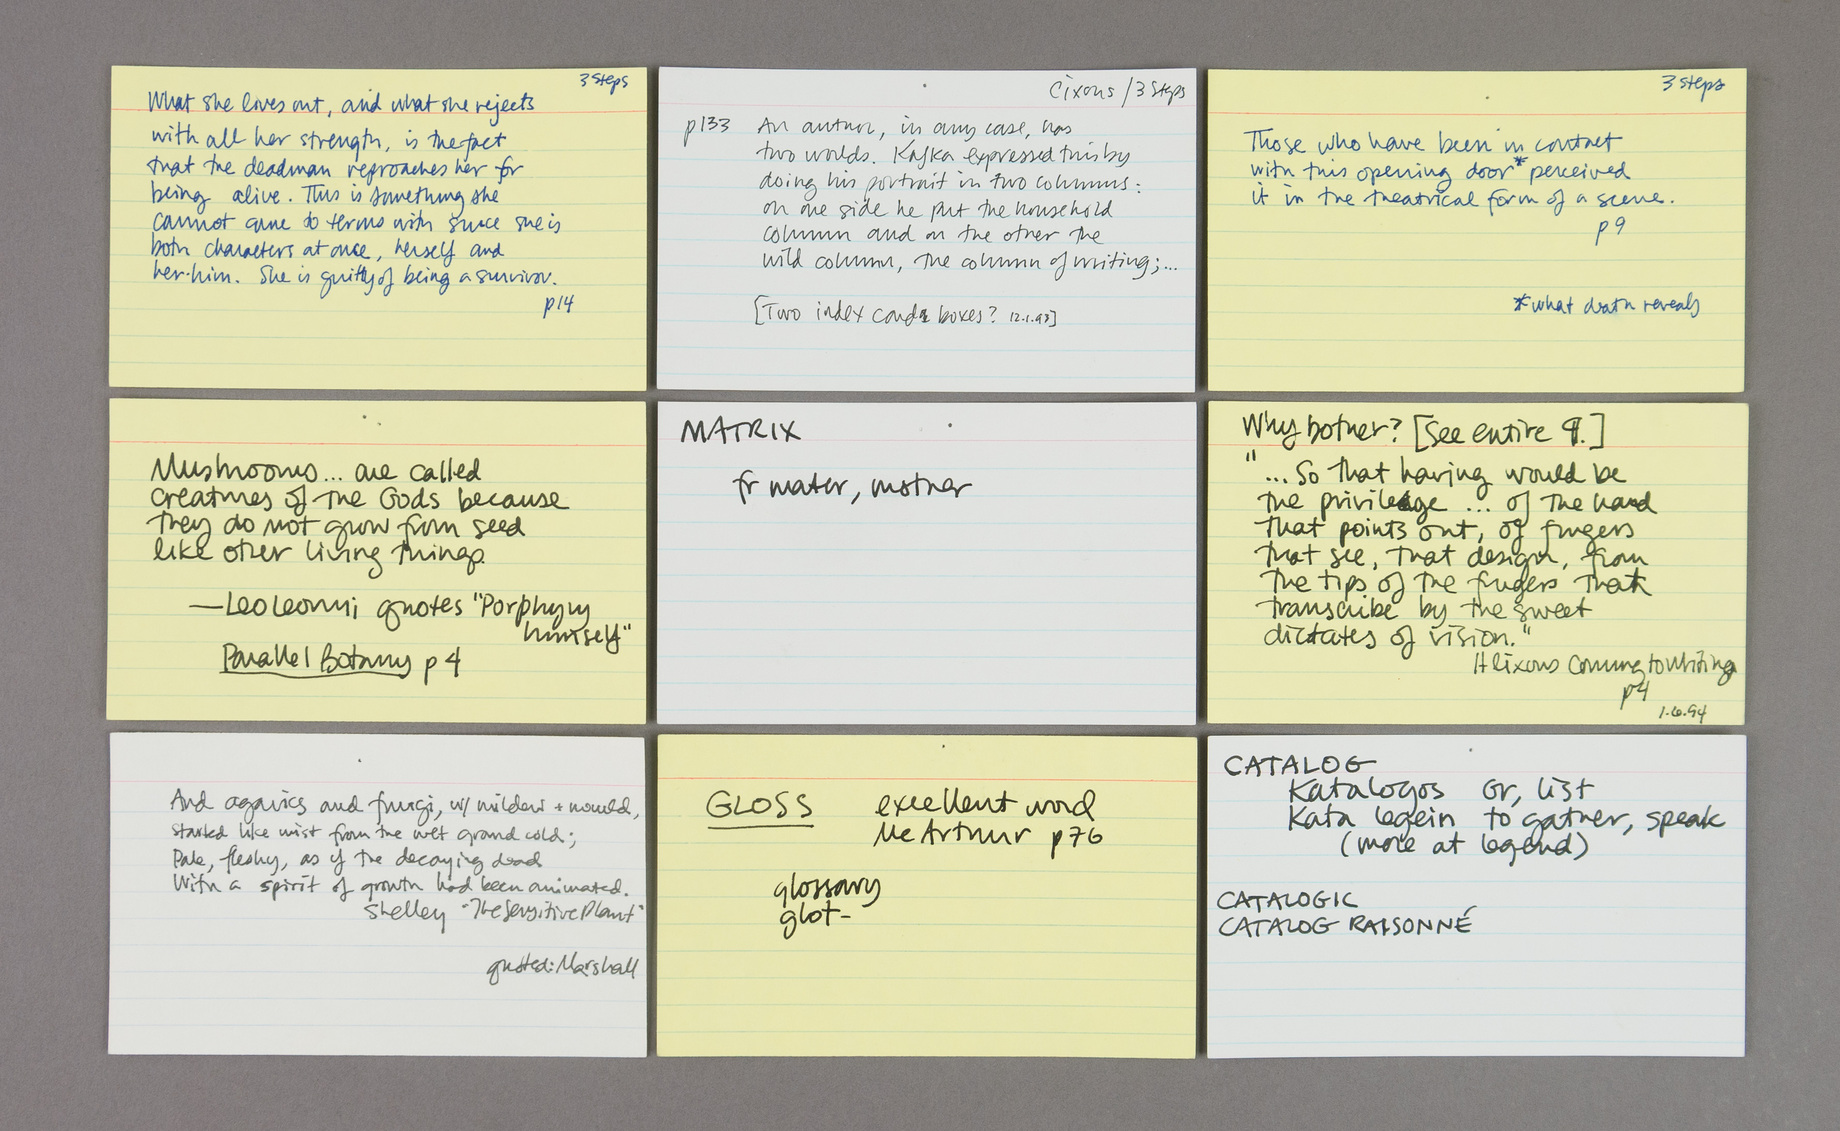 3 Steps
What she lives out, and what she rejects
with all her strength, is the fact
that the deadman reproaches her for
being alive. This is something she
cannot come to terms with since she is
both characters at once, herself and
her-him. She is guilty of being a survivor.
p14
Cixous / 3 Steps
p133 An author, in any case, has
two worlds. Kafka expressed this by
doing his portrait in two columns:
on one side he put the household
column and on the other the
wild column, the column of writing;...
[Two index card boxes? 12.1.93]
3 steps
Those who have been in contact
with this opening door* perceived
it in the theatrical form of a scene.
p9
*what death reveals
Mushrooms... are called
creatures of the Gods because
they do not grow from seed
like other living things.
—Leo Leonni quotes "Porphyry
himself"
Parallel Botany p4
MATRIX
fr mater, mother
Why bother? [See entire ¶.]
"...So that having would be
the privilege ... of the hand
that points out, of fingers
that see, that design, from
the tips of the fingers that
transcribe by the sweet
dictates of vision."
H Cixous Coming to Writing
p4
1.6.94
And agarics and fungi, w/ mildew + mould,
started like mist from the wet ground cold;
Pale, fleshy, as if the decaying dead
With a spirit of growth had been animated.
Shelley "The Sensitive Plant"
quoted: Marshall
GLOSS excellent word
McArthur p76
glossary
glot-
CATALOG
Katalogos Gr, list
Kata legein to gather, speak
(more at legend)
CATALOGIC
CATALOG RAISONNÉ